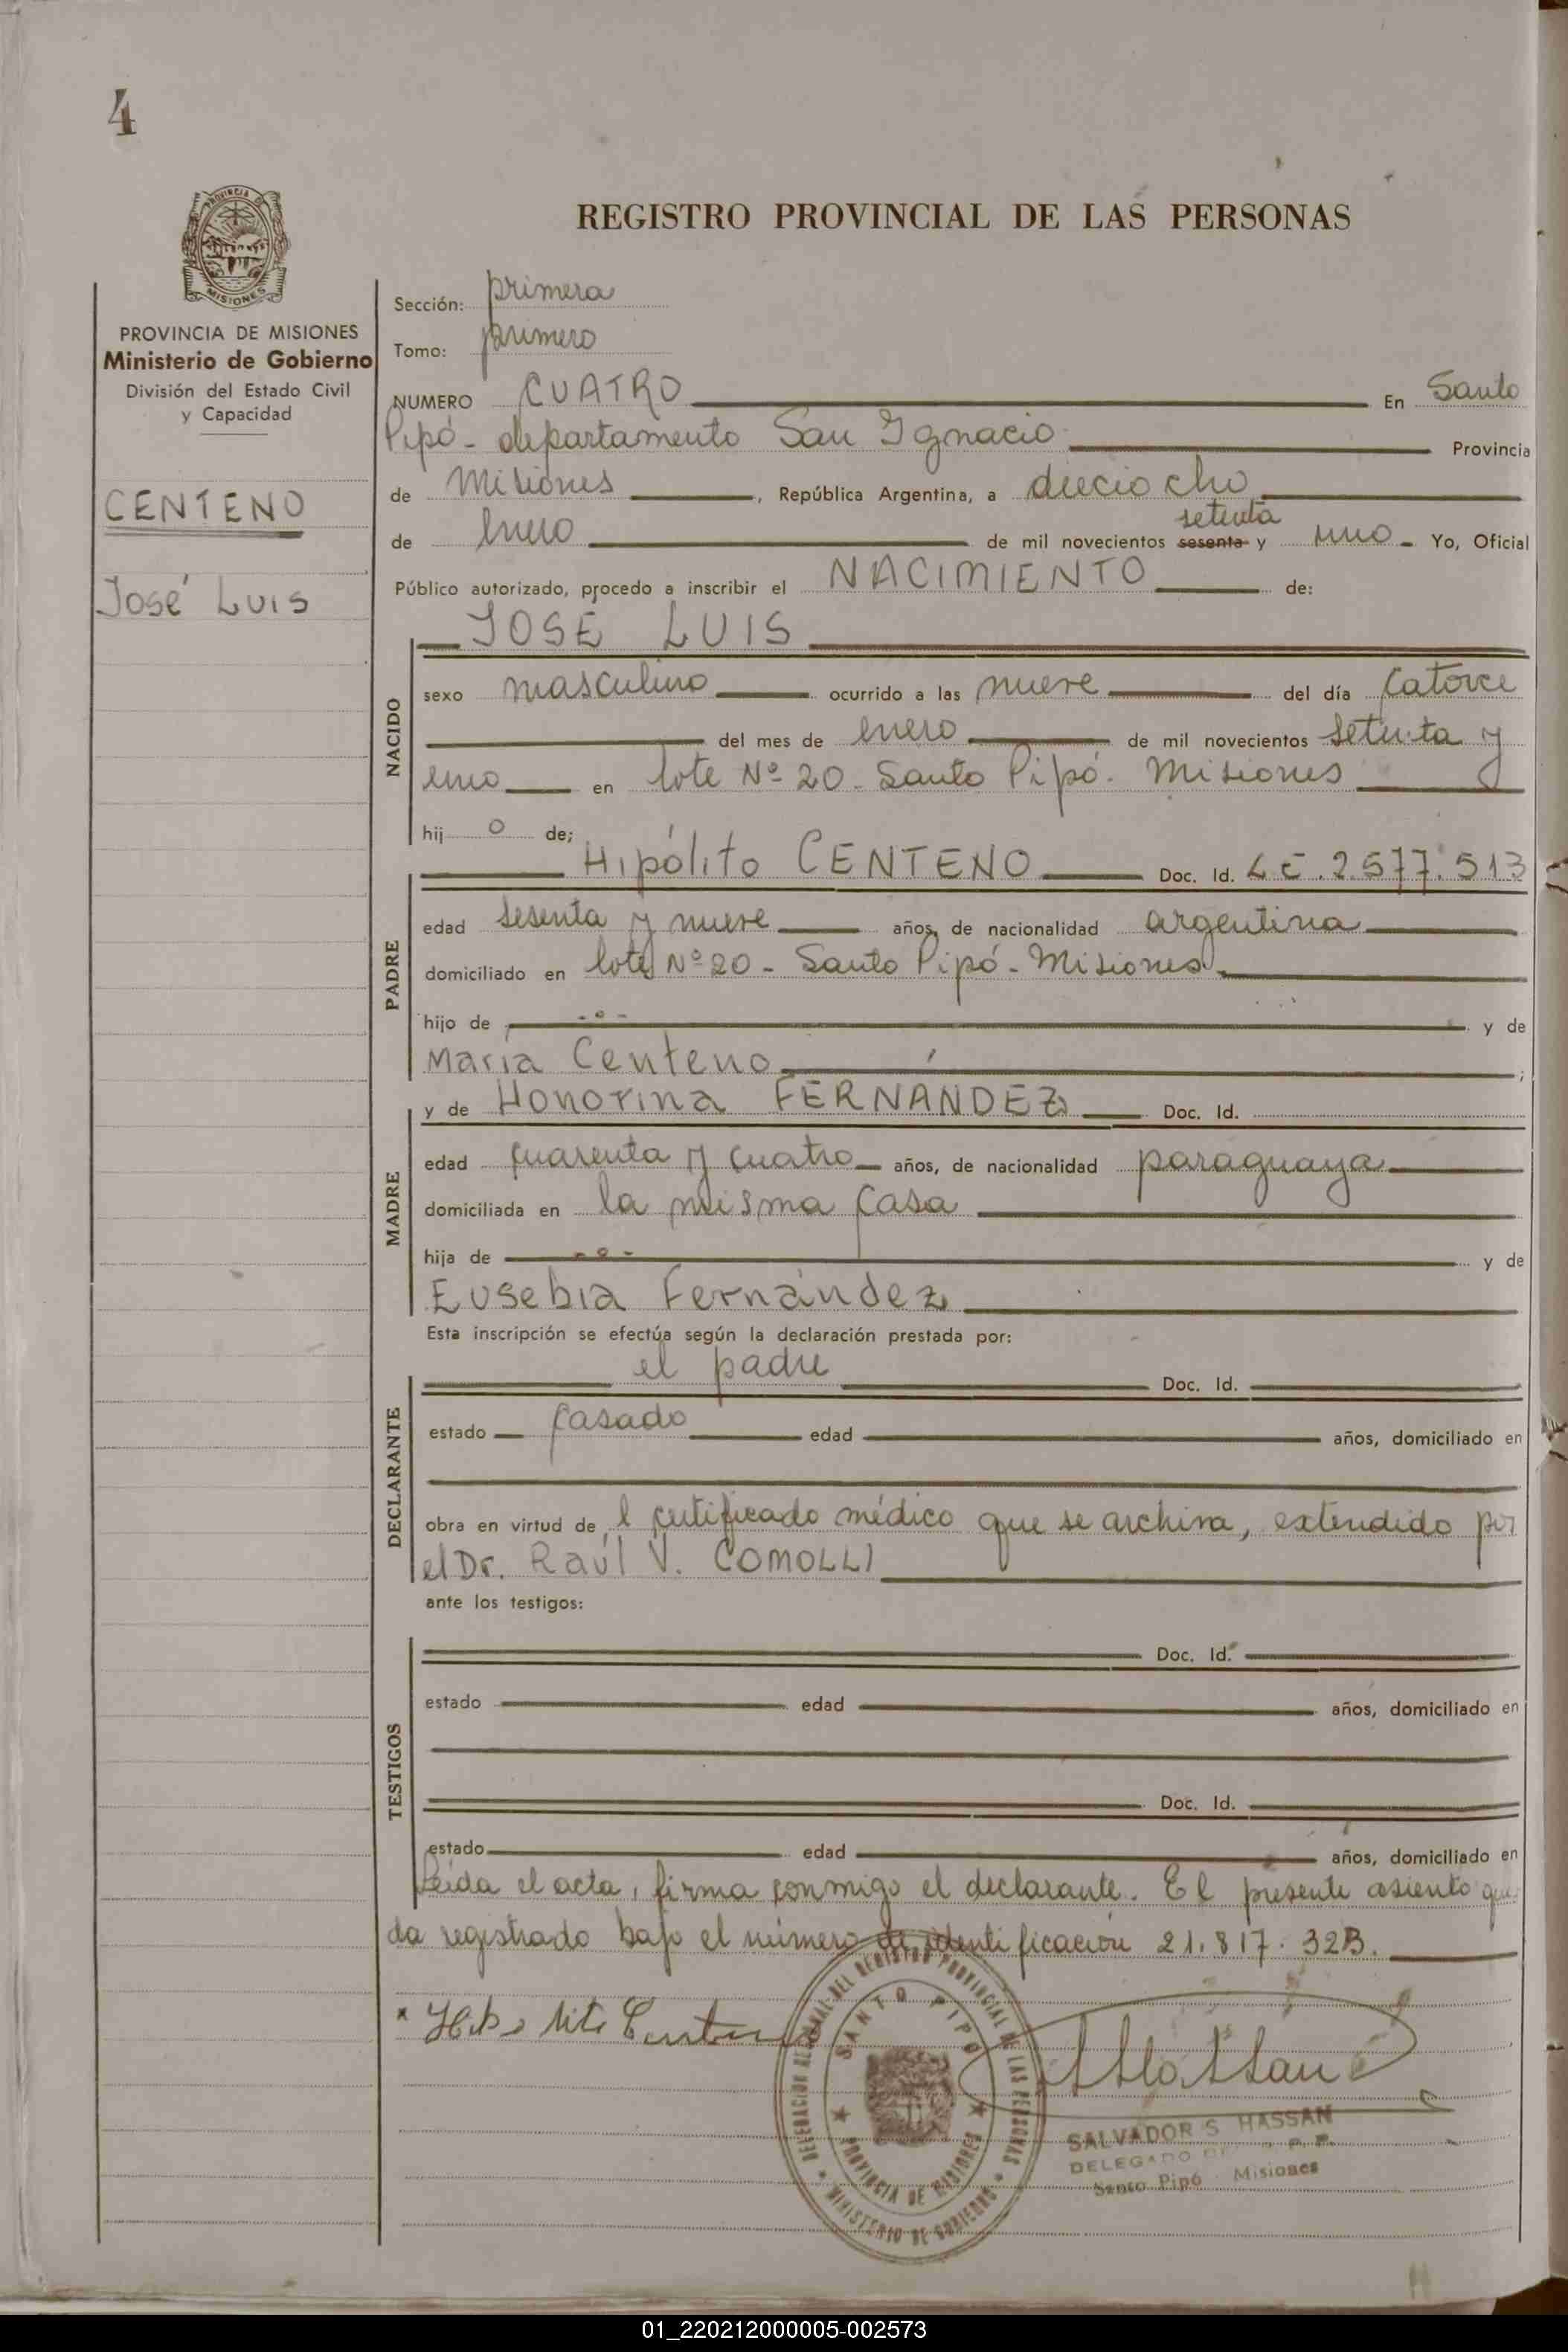 4
PROVINCIA DE
MISIONES
PROVINCIA DE MISIONES
Ministerio de Gobierno
División del Estado Civil
y Capacidad
CENTENO
José Luis
REGISTRO PROVINCIAL DE LAS PERSONAS
Sección: primera
Tomo: primero
NUMERO CUATRO En Santo
Pipó - departamento San Ignacio Provincia
de Misiones, República Argentina, a dieciocho
setenta
de enero de mil novecientos sesenta y uno - Yo, Oficial
Público autorizado, procedo a inscribir el NACIMIENTO de:
JOSÉ LUIS
NACIDO
sexo masculino ocurrido a las nueve del día catorce
del mes de enero de mil novecientos setenta y
uno en lote Nº 20 - Santo Pipó - Misiones
hij o de;
PADRE
Hipólito CENTENO Doc. Id. L E. 2.577.513
edad sesenta y nueve años, de nacionalidad argentina
domiciliado en lote Nº 20 - Santo Pipó - Misiones
hijo de - o - y de
María Centeno ;
MADRE
y de Honorina FERNÁNDEZ Doc. Id.
edad cuarenta y cuatro años, de nacionalidad paraguaya
domiciliada en la misma casa
hija de - o - y de
Eusebia Fernández
Esta inscripción se efectúa según la declaración prestada por:
DECLARANTE
el padre Doc. Id.
estado casado edad años, domiciliado en
obra en virtud de l certificado médico que se archiva, extendido por
el Dr. Raúl V. COMOLLI
ante los testigos:
TESTIGOS
Doc. Id.
estado edad años, domiciliado en
Doc. Id.
estado edad años, domiciliado en
Leída el acta, firma conmigo el declarante. El presente asiento que
da registrado bajo el número de identificación 21.817.32B.
x Hipolito Centeno
DELEGACION DEL REGISTRO PROVINCIAL DE LAS PERSONAS
SANTO PIPO
PROVINCIA DE MISIONES
MINISTERIO DE GOBIERNO
SALVADOR S. HASSAN
DELEGADO
Santo Pipó Misiones
01_220212000005-002573